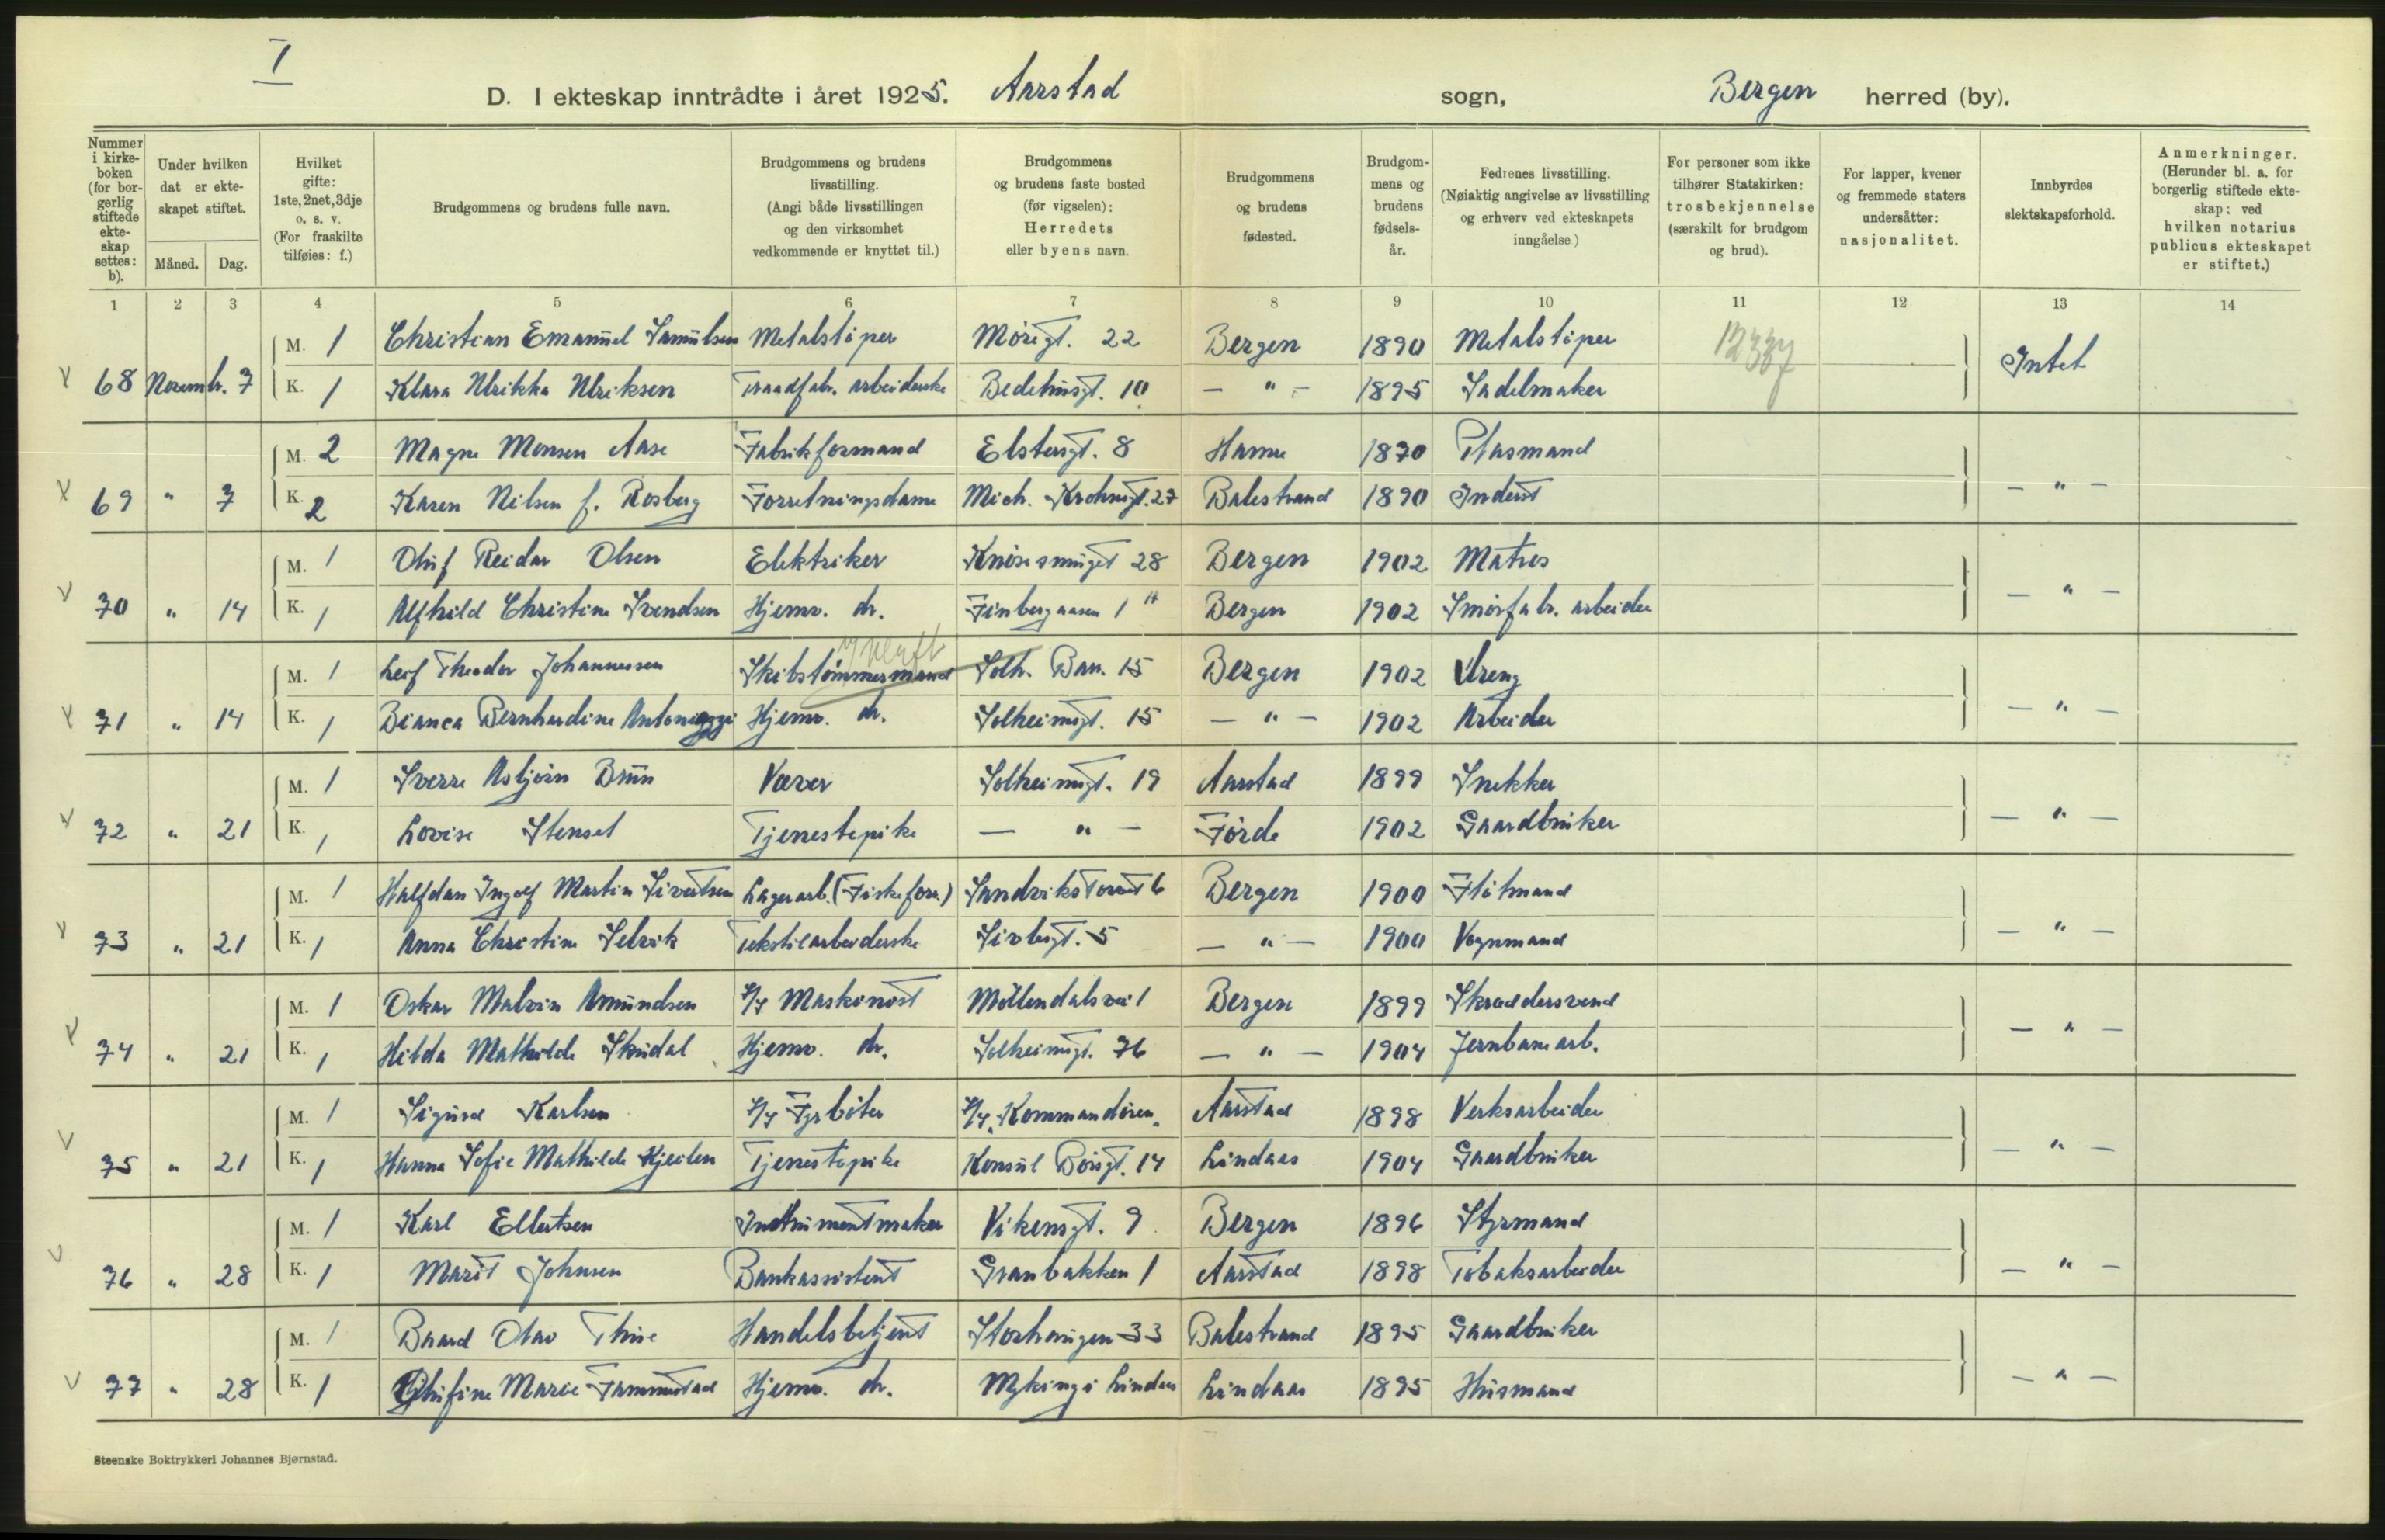 I
D. I ekteskap inntrådte i året 1925. Aarstad sogn, Bergen herred (by).
Nummer i kirkeboken (for borgerlig stiftede ekteskap settes: b). | Under hvilken dat er ekteskapet stiftet. Måned. Dag. | Hvilket gifte: 1ste, 2net, 3dje o. s. v. (For fraskilte tilføies: f.) | Brudgommens og brudens fulle navn. | Brudgommens og brudens livsstilling. (Angi både livsstillingen og den virksomhet vedkommende er knyttet til.) | Brudgommens og brudens faste bosted (før vigselen): Herredets eller byens navn. | Brudgommens og brudens fødested. | Brudgommens og brudens fødselsår. | Fedrenes livsstilling. (Nøiaktig angivelse av livsstilling og erhverv ved ekteskapets inngåelse) | For personer som ikke tilhører Statskirken: trosbekjennelse (særskilt for brudgom og brud). | For lapper, kvener og fremmede staters undersåtter: nasjonalitet. | Innbyrdes slektskapsforhold. | Anmerkninger. (Herunder bl. a. for borgerlig stiftede ekteskap: ved hvilken notarius publicus ekteskapet er stiftet.)
1 2 3 4 5 6 7 8 9 10 11 12 13 14
M. 1 Christian Emanuel Samuelsen Metalstøper Mørigt. 22 Bergen 1890 Metalstøper
68 Novembr. 7 K. 1 Klara Ulrikka Ulriksen Traadfabr. arbeiderske Bedehusgt. 10 — " — 1895 Sadelmaker Intet
M. 2 Magne Monsen Aase Fabrikformand Elstersgt. 8 Hamre 1870 Plasmand
69 " 7 K. 2 Karen Nilsen f. Rosberg Forretningsdame Mich. Krohnsgt. 27 Balestrand 1890 Inderst — " —
M. 1 Oluf Reidar Olsen Elektriker Knøsesmuget 28 Bergen 1902 Matros
70 " 14 K. 1 Alfhild Christine Svendsen Hjemv. dr. Finbergaasen 1 Bergen 1902 Smørfabr. arbeider — " —
M. 1 Leif Theodor Johannessen Skibstømmermand Solh. Ban. 15 Bergen 1902
71 " 14 K. 1 Bianca Bernhardine Hjemv. dr. Solheimsgt. 15 — " — 1902 Arbeider — " —
M. 1 Sverre Asbjørn Brun Væver Solheimsgt. 19 Aarstad 1899 Snekker
72 " 21 K. 1 Lovise Stenset Tjenestepike — " — Førde 1902 Gaardbruker — " —
M. 1 Halfdan Ingolf Martin Sivertsen Lagerarb. (Fiskeforr.) Sandvikstorvet 6 Bergen 1900 Fløtmand
73 " 21 K. 1 Anna Christine Selvik Tekstilarbeiderske Sivlesgt. 5 — " — 1900 Vognmand — " —
M. 1 Oskar Malvin Amundsen S/S Maskinist Møllendalsvei 1 Bergen 1899 Skræddersvend
74 " 21 K. 1 Hilda Mathilde Skudal Hjemv. dr. Solheimsgt. 76 — " — 1904 Jernbanearb. — " —
M. 1 Sigurd Karlsen S/S Fyrbøter S/S "Kommandøren" Aarstad 1898 Verksarbeider
75 " 21 K. 1 Hanna Sofie Mathilde Kjeilen Tjenestepike Konsul Børsgt. 14 Lindaas 1904 Gaardbruker — " —
M. 1 Karl Ellertsen Instrumentmaker Vikensgt. 9 Bergen 1896 Styrmand
76 " 28 K. 1 Marit Johnsen Bankassistent Granbakken 1 Aarstad 1898 Tobaksarbeider — " —
M. 1 Baard Olav Thue Handelsbetjent Storhaugen 33 Balestrand 1895 Gaardbruker
77 " 28 K. 1 Marie Hjemv. dr. Myking i Lindaas Lindaas 1895 Husmand — " —
Steenske Boktrykkeri Johannes Bjørnstad.